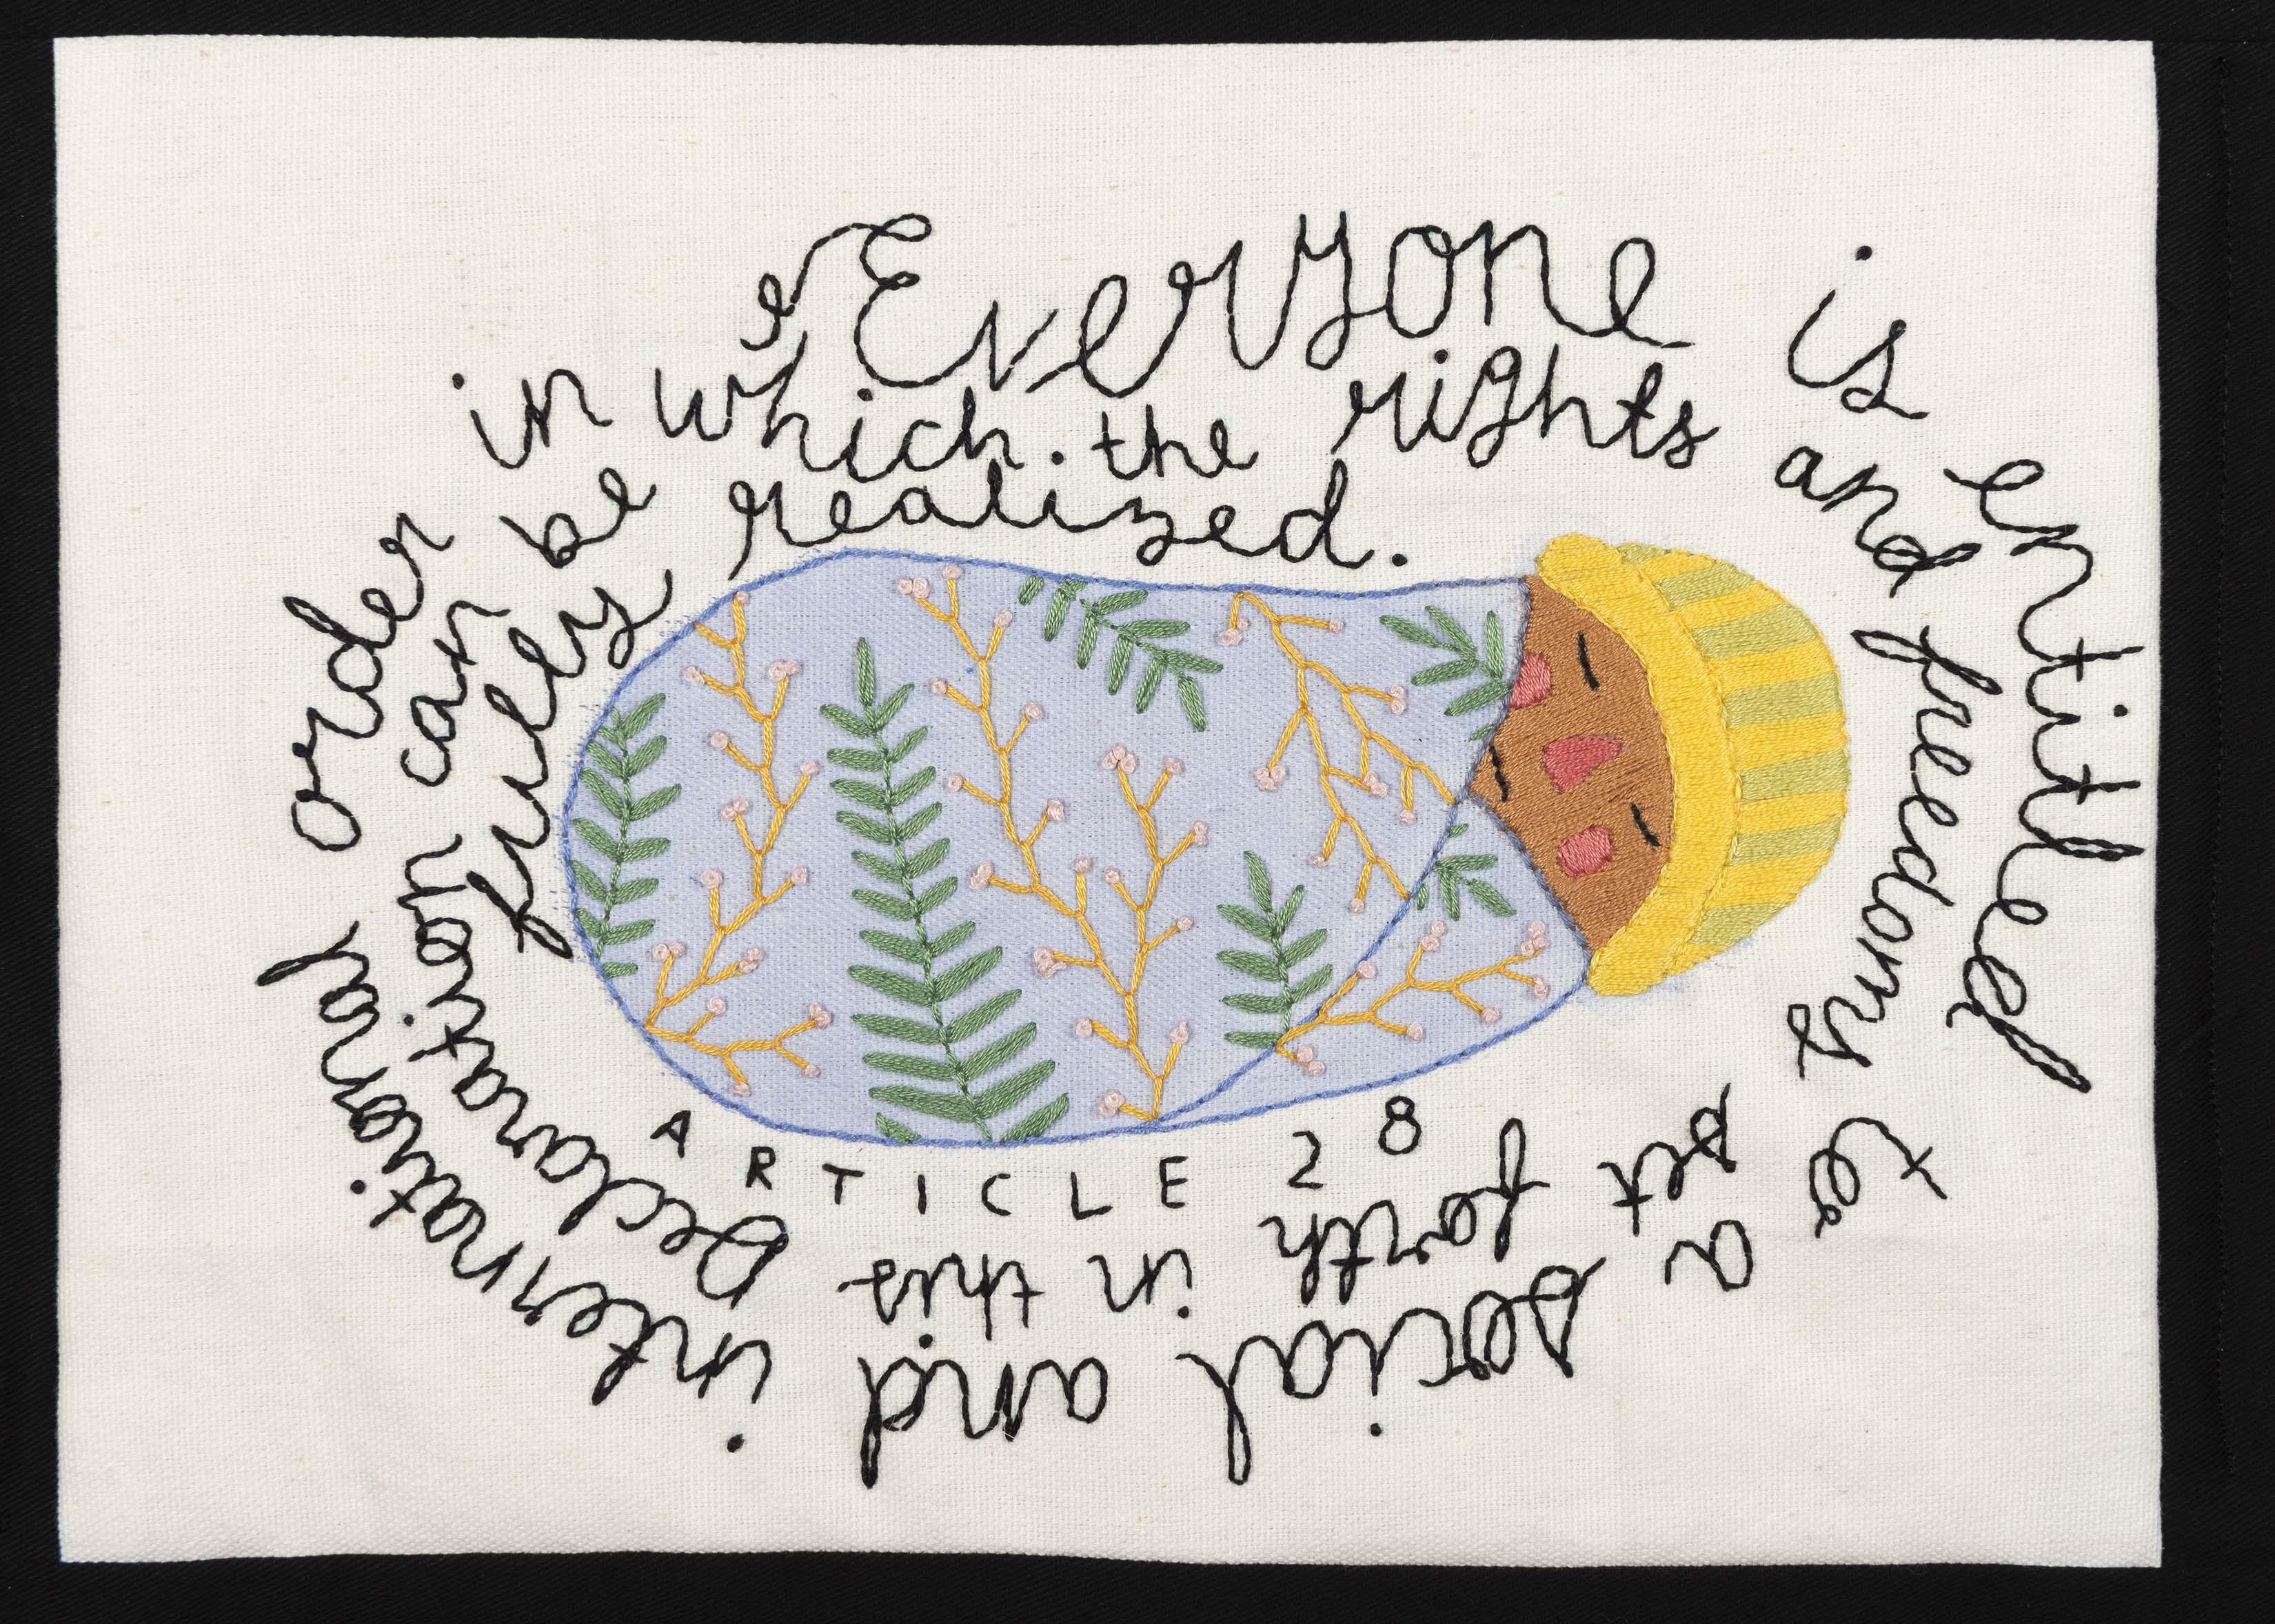 Everyone is entitled to a social and international order
in which the rights and freedoms set forth in this Declaration can be
fully realized.
ARTICLE 28